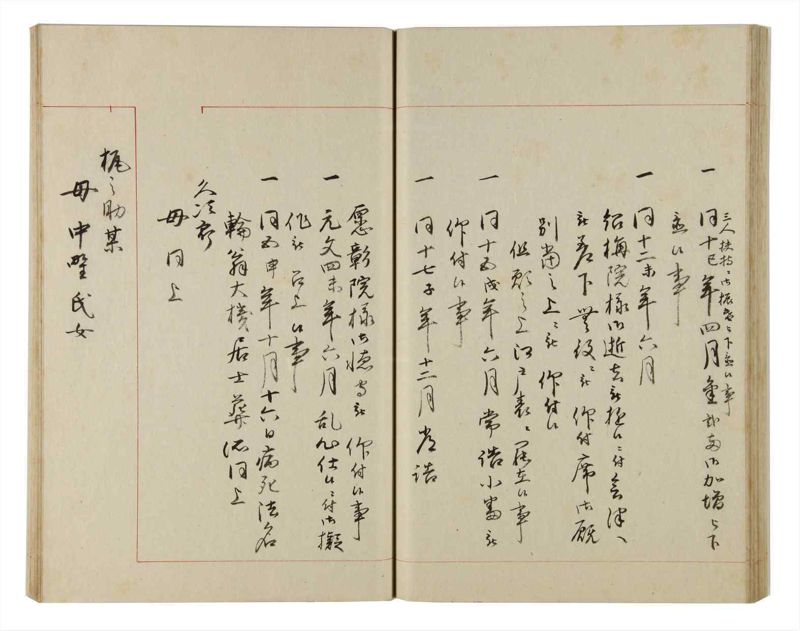 一 同十巳年四月金弐両御加増被下
三人扶持ニ御振替被下置候事
置候事
一 同十二未年六月
紹梅院様御逝去被遊候ニ付会津へ
被差下無役ニ被 仰付席御厩
別当之上ニ被 仰付候
但願之上江戸表ニ罷在候事
一 同十五戌年六月常詰小番被
仰付候事
一 同十七子年十二月常詰
愿彰院様御 被 仰付候事
一 元文四未年六月乱心仕候ニ付御擬
作被召上候事
一 同五申年十月十六日病死法名
輪翁大機居士葬 同上
久次郎
母同上
梶之助某
母中野氏女